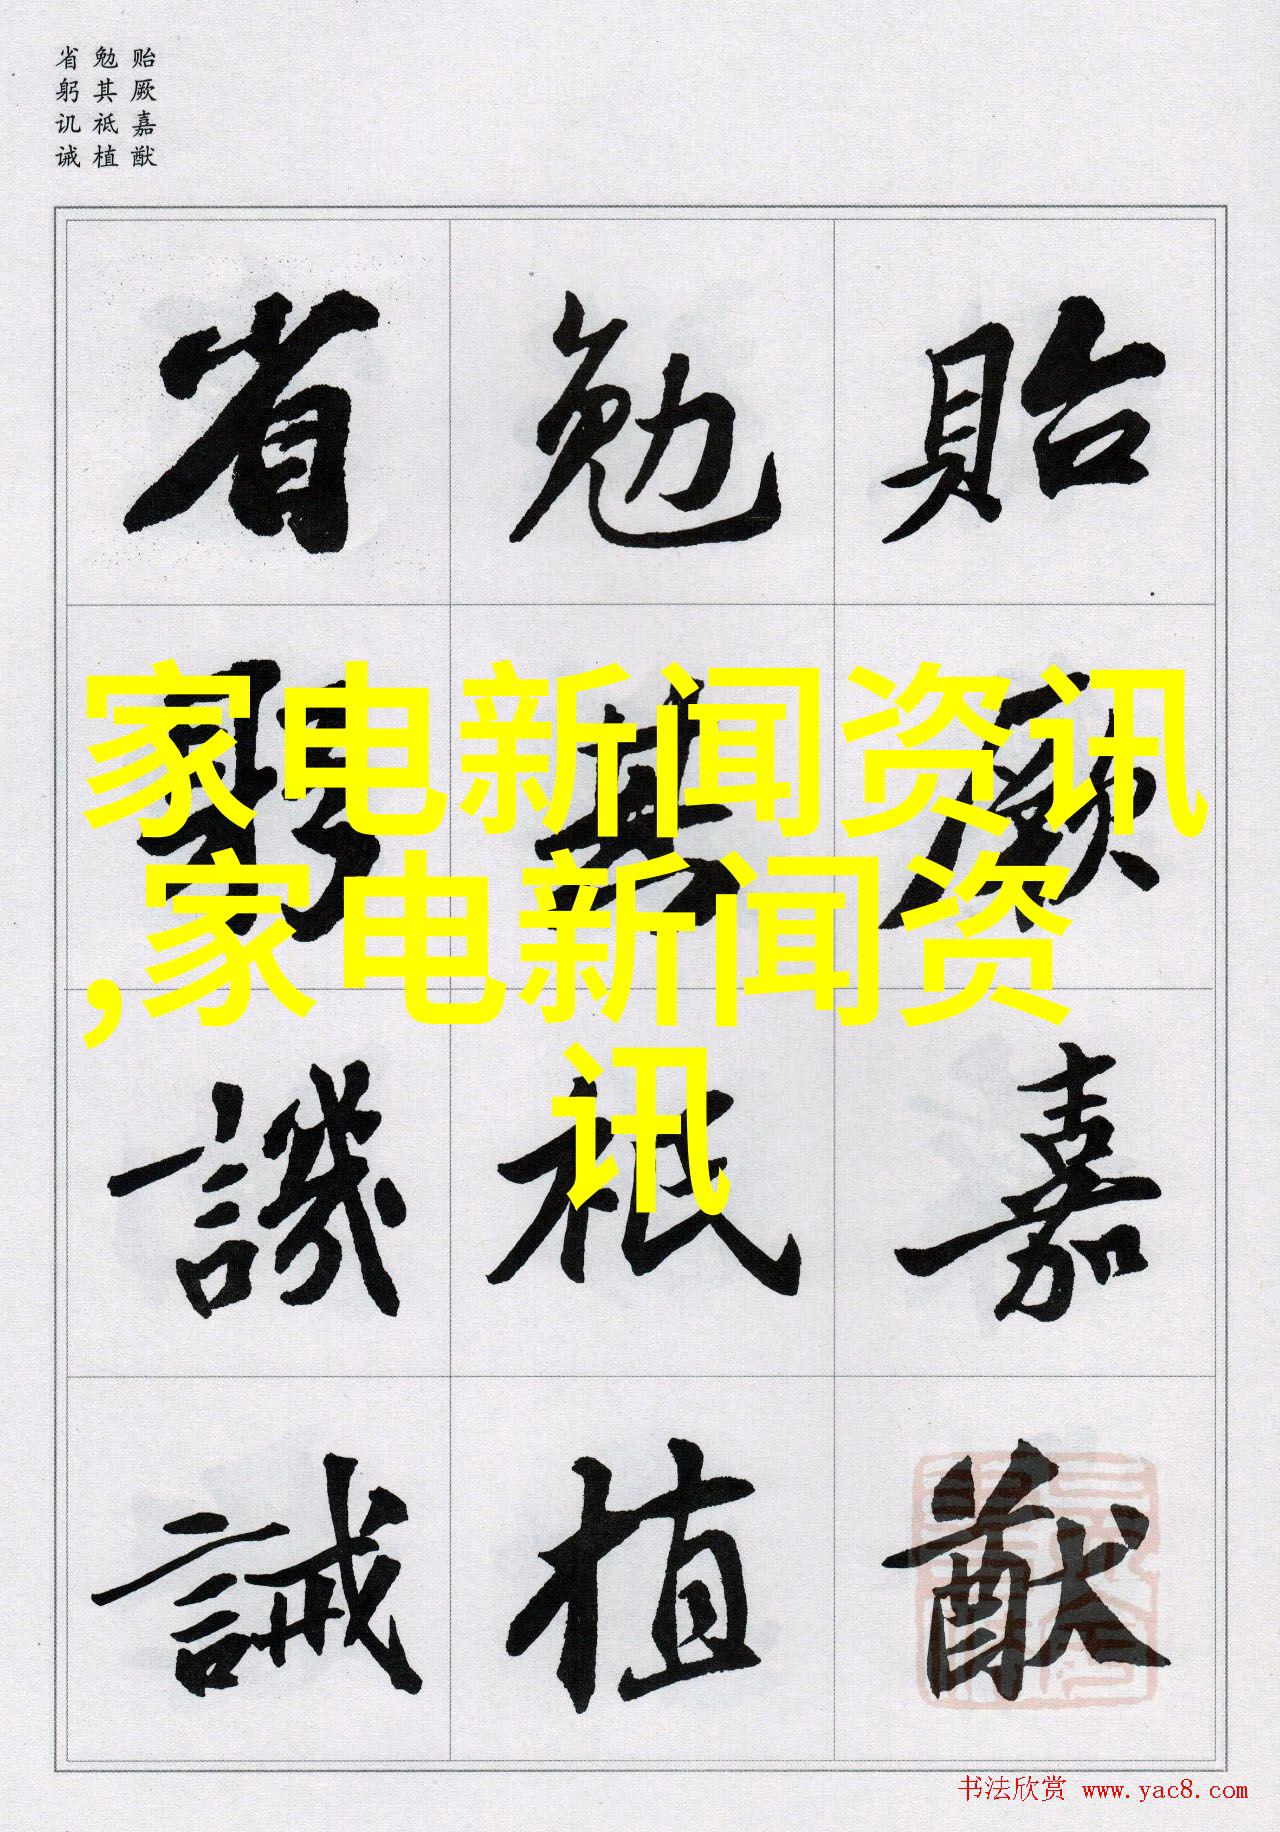 贻厥嘉猷
勉其祗植
省躬讥诫
貽厥嘉猷
勉其祗植
省躬譏誡
家电新闻资讯
,家电新闻资
讯
书法欣赏 www.yac8.com